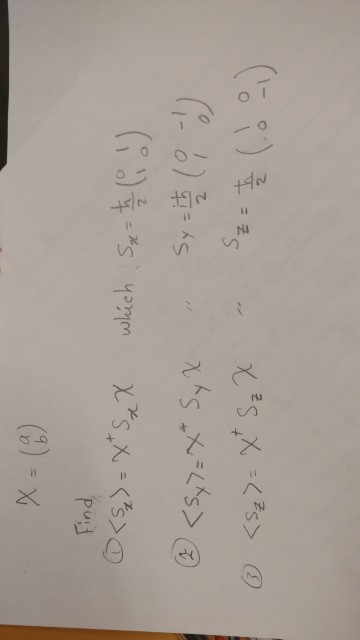 χ = (a b)
Find
① <Sx> = χ† Sx χ which, Sx = ħ/2 (0 1 1 0)
② <Sy> = χ† Sy χ " Sy = iħ/2 (0 -1 1 0)
③ <Sz> = χ† Sz χ " Sz = ħ/2 (1 0 0 -1)